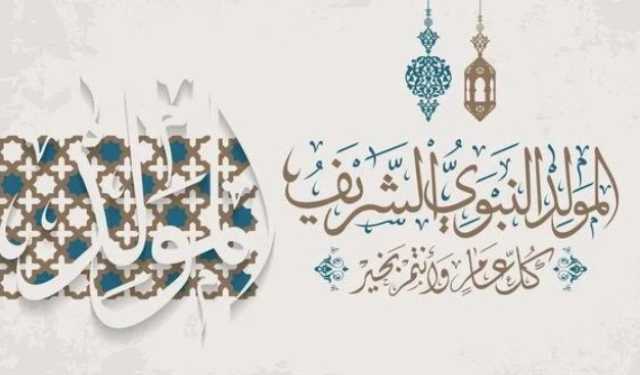 المولد النبوي الشريف
كل عام وأنتم بخير
المولد